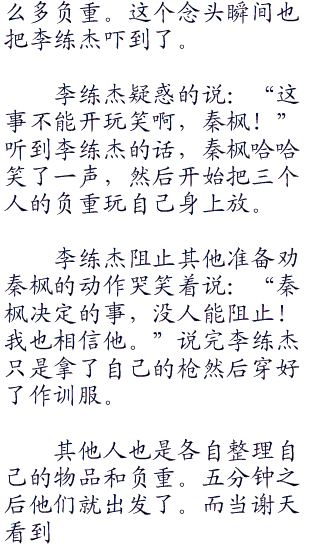 么多负重。这个念头瞬间也
把李练杰吓到了。
李练杰疑惑的说：“这
事不能开玩笑啊，秦枫！”
听到李练杰的话，秦枫哈哈
笑了一声，然后开始把三个
人的负重玩自己身上放。
李练杰阻止其他准备劝
秦枫的动作哭笑着说：“秦
枫决定的事，没人能阻止！
我也相信他。”说完李练杰
只是拿了自己的枪然后穿好
了作训服。
其他人也是各自整理自
己的物品和负重。五分钟之
后他们就出发了。而当谢天
看到